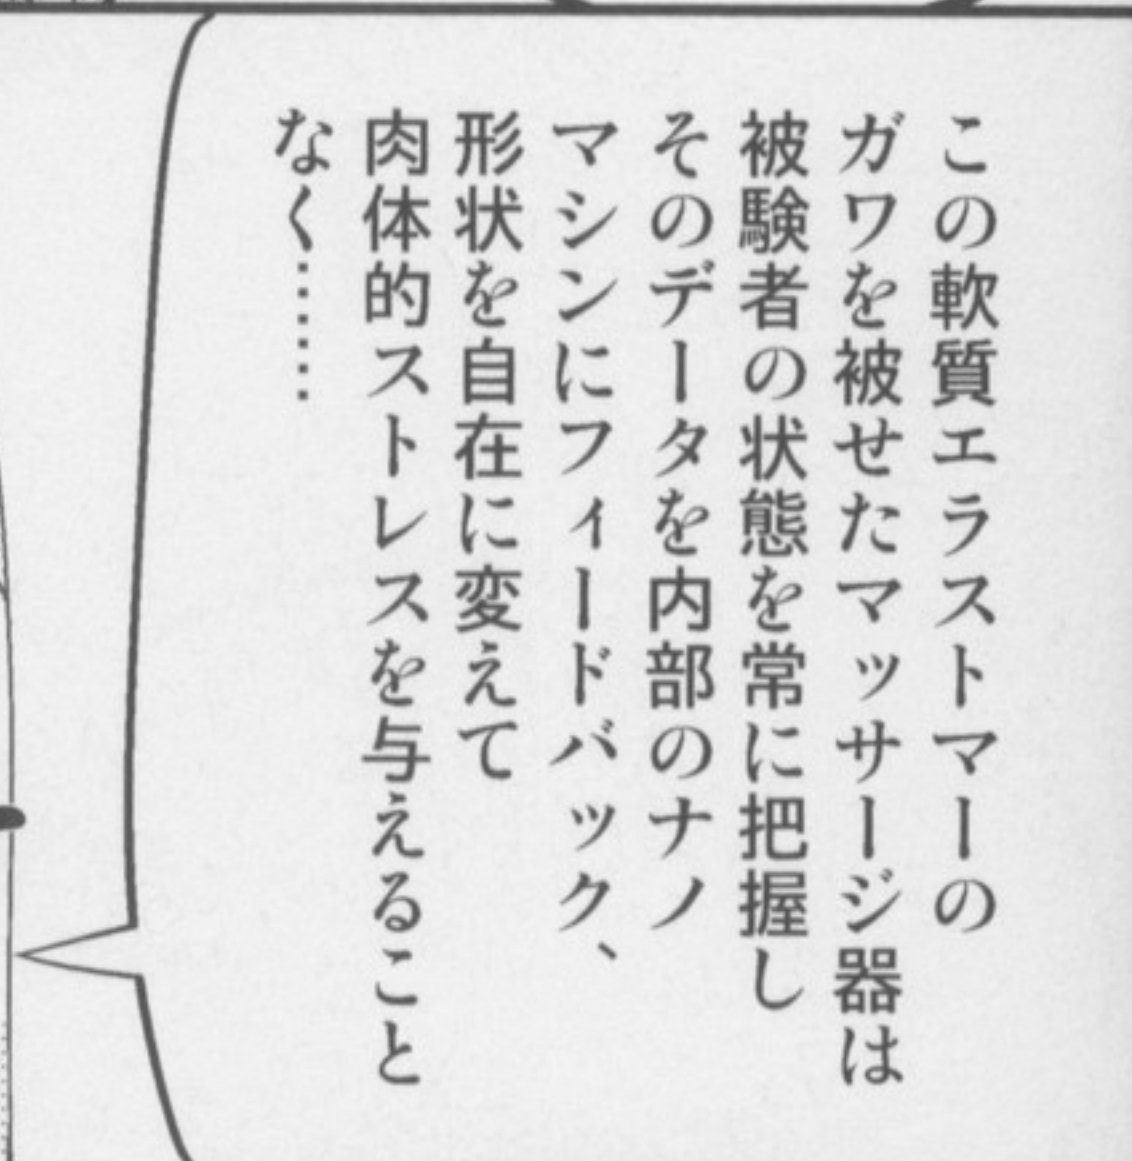 この軟質エラストマーの
ガワを被せたマッサージ器は
被験者の状態を常に把握し
そのデータを内部のナノ
マシンにフィードバック、
形状を自在に変えて
肉体的ストレスを与えること
なく……